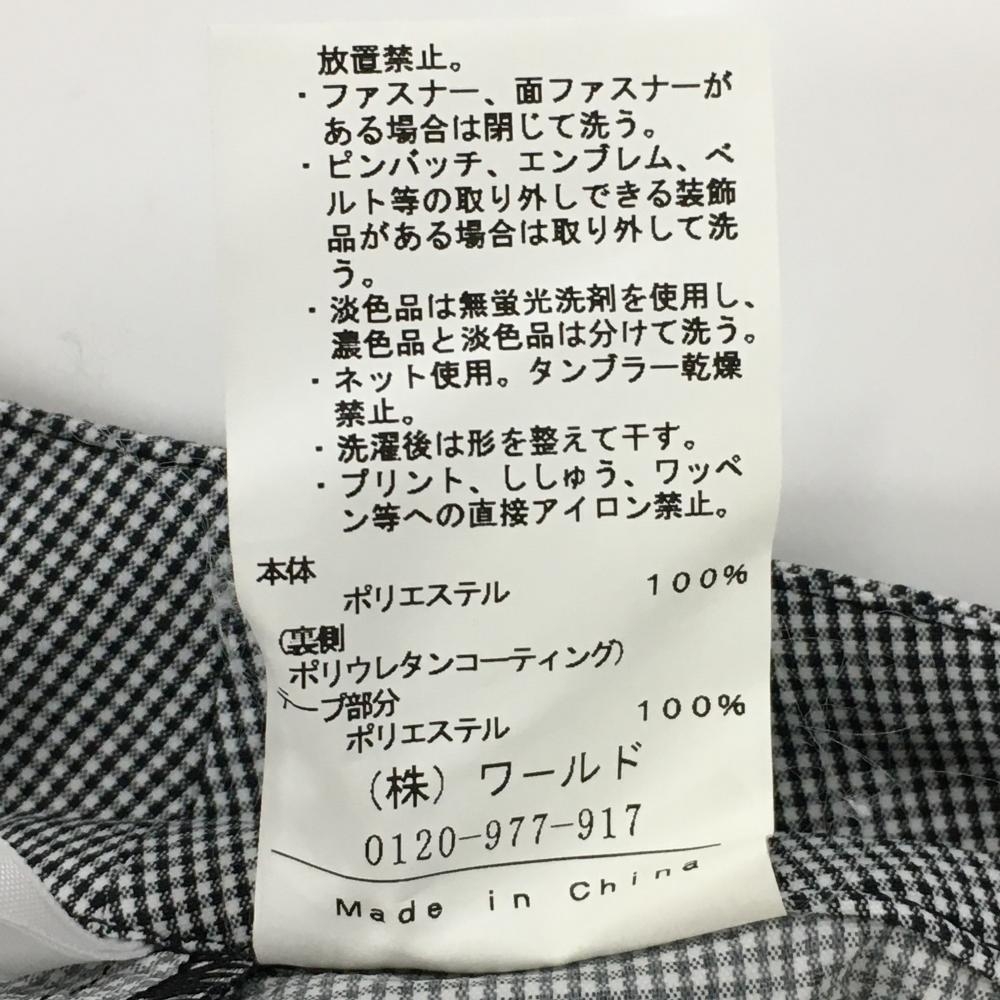 放置禁止。
・ファスナー、面ファスナーが
ある場合は閉じて洗う。
・ピンバッチ、エンブレム、ベ
ルト等の取り外しできる装飾
品がある場合は取り外して洗
う。
・淡色品は無蛍光洗剤を使用し、
濃色品と淡色品は分けて洗う。
・ネット使用。タンブラー乾燥
禁止。
・洗濯後は形を整えて干す。
・プリント、ししゅう、ワッペ
ン等への直接アイロン禁止。
本体
ポリエステル 100%
(裏側
ポリウレタンコーティング)
ープ部分
ポリエステル 100%
(株) ワールド
0120-977-917
Made in China